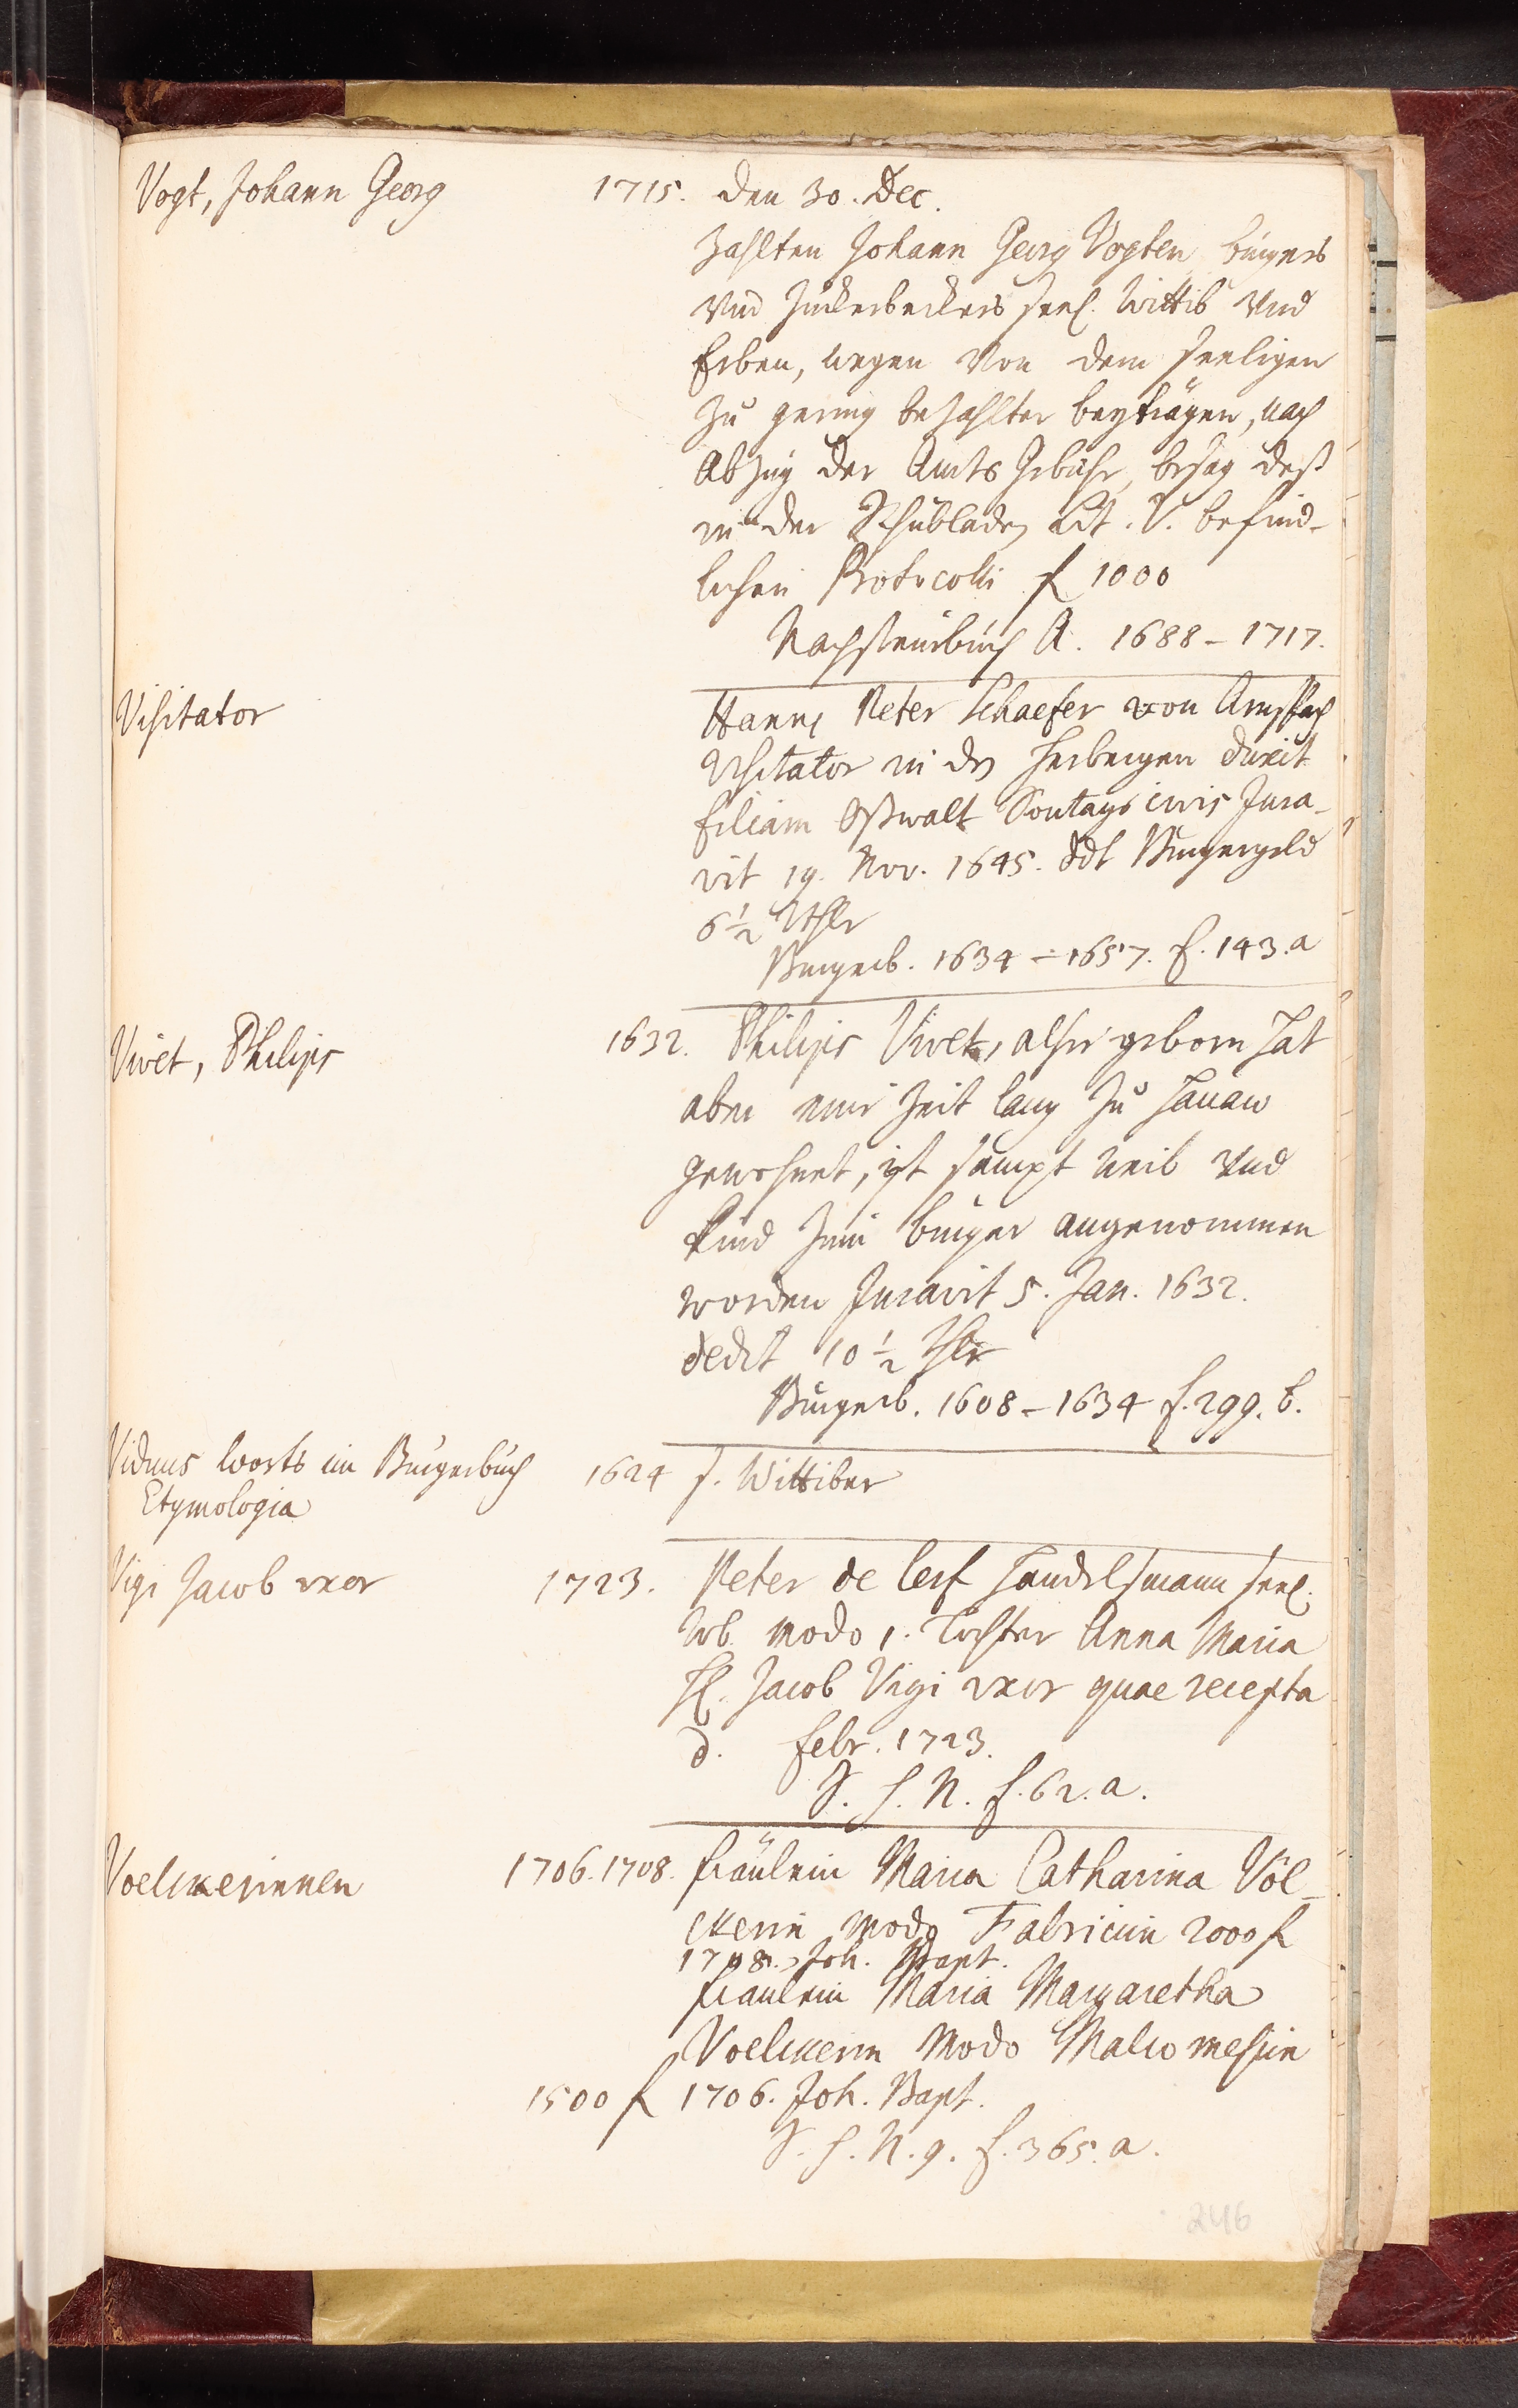 Vogt, Johann Georg 1715. den 30. Dec.
Zahlten Johann Georg Vogten burgers
und Zuckerbeckers seel. Wittib und
Erben, wegen von dem seeligen
zu gering bezahlter beyträgen, nach
Abzug der Amts Gebühr, besag deß
in der Schubladen Lit. V. befind-
lichen Protocolli f 1000
Nachsteurbuch A. 1688 - 1717.
Visitator Hanns Peter Schaefer von
Visitator in den Herbergen duxit
filiam Oßwalt Sontags civis Jura-
vit 19. Nov. 1645. ddt Burgergeld
6 1/2 Rthlr
Burgerb. 1634 - 1657. f. 143.a
Vivet, Philips 1632. Philips Vivet, alhie geborn hat
aber eine Zeit lang zu Hanaw
gewohnet, ist sampt weib und
Kind zum burger angenommen
worden Juravit 5. Jan. 1632.
dedit 10 1/2 thlr
Burgerb. 1608 - 1634 f. 299. b.
Viduus worts im Burgerbuch 1624 s. Wittiber
Etymologia
Vigi Jacob uxor 1723. Peter de Handelsmann seel.
Wb. modo s. Tochter Anna Maria
H. Jacob Vigi uxor quae recepta
d. Febr. 1723.
S. S. N. f. 62. a.
Voelckerinnen 1706. 1708. fräulein Maria Catharina Völ-
ckerin modo Fabriciin 2000 f
1708. Joh. Bapt.
fräulein Maria Margaretha
Voelckerin modo Malcomesiin
1500 f 1706. Joh. Bapt.
S. S. N. 9. f. 365. a.
246